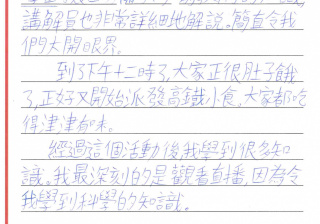 講解員也非常詳細地解說。簡直令我
們大開眼界。
到了下午十二時了,大家正很肚子餓
了,正好又開始派發高鐵小食,大家都吃
得津津有味。
經過這個活動後我學到很多知
識。我最深刻的是觀看直播,因為令
我學到科學的知識。